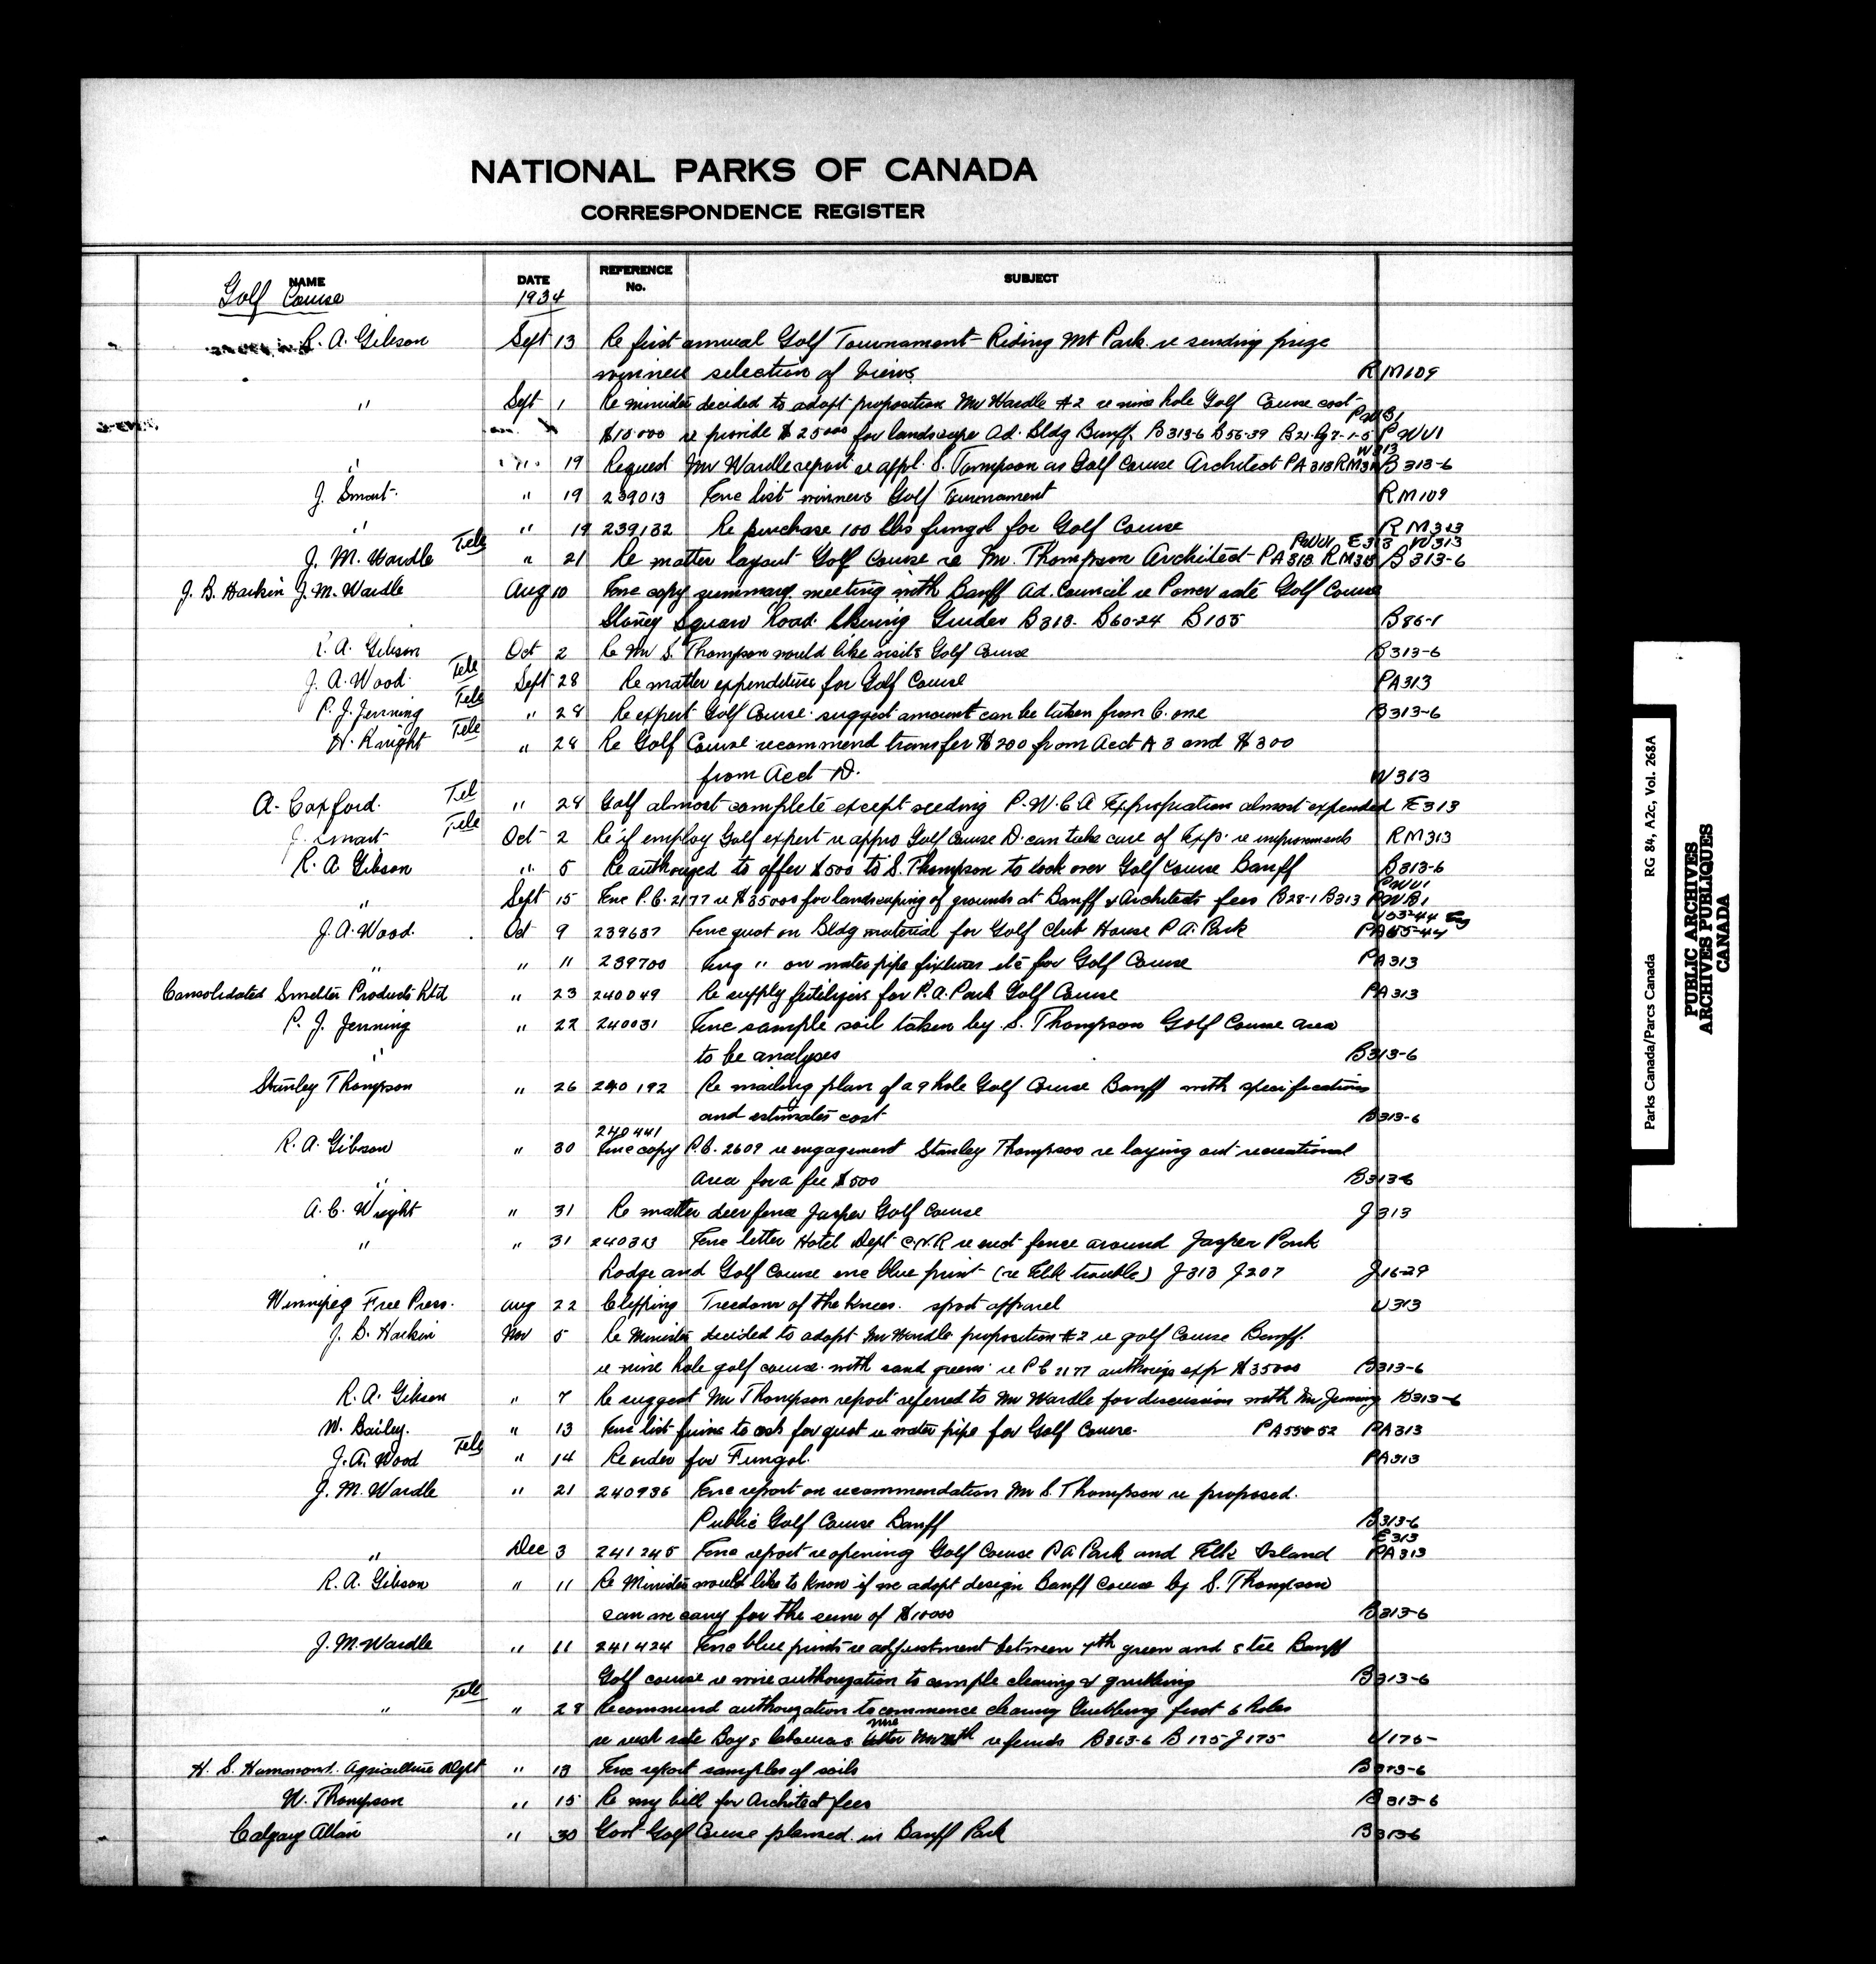 NATIONAL PARKS OF CANADA
CORRESPONDENCE REGISTER
NAME DATE REFERENCE No. SUBJECT
Golf Course 1934
R. A. Gibson Sept 13 Re first annual Golf Tournament Riding Mt Park re sending prize
winners selection of views RM109
" Sept 1 Re minister decided to adopt proposition Mr Wardle #2 re nine hole Golf Course cost
PWB1
$10000 re provide $25000 for landscape Ad. Bldg Banff. B313-6 B56-39 PWU1
W313
" " 19 Request Mr Wardle report re appl. S. Thompson as Golf Course Architect PA313 RM313 B313-6
J. Smart. " 19 239013 Enc list winners Golf Tournament RM109
" " 19 239132 Re purchase 100 lbs fungol for Golf Course RM313
PWU1 E313 W313
J. M. Wardle Tele " 21 Re matter layout Golf Course re Mr. Thompson Architect PA313 RM313 B313-6
J. B. Harkin J. M. Wardle Aug 10 Enc copy summary meeting with Banff Ad. Council re Power rate Golf Course
Stoney Squaw Road. Skiing Guides B313. B60-24 B105 B86-1
R. A. Gibson Oct 2 Re Mr S. Thompson would like visit Golf Course B313-6
J. A. Wood. Tele Sept 28 Re matter expenditure for Golf Course PA313
P. J. Jenning Tele " 28 Re expert Golf Course suggest amount can be taken from C. one B313-6
H. Knight Tele " 28 Re Golf Course recommend transfer $200 from Acct A 3 and $300
from Acct D. W313
A. Coxford. Tel " 28 Golf almost complete except seeding P.W.C.A Expropriation almost expended E313
J. Smart Tele Oct 2 Re if employ Golf expert re appro Golf Course D. can take care of Exp. re improvements RM313
R. A Gibson " 5 Re authorized to offer $500 to S. Thompson to look over Golf Course Banff B313-6
PWU1
" Sept 15 Enc P.C. 2177 re $35000 for landscaping of grounds at Banff & Architects fees B28-1 B313 PWB1
J. A. Wood. Oct 9 239637 Enc quot on Bldg material for Golf Club House P A. Park
" " 11 239700 Enq " on water pipe fixtures etc for Golf Course PA313
Consolidated Smelter Products Ltd " 23 240049 Re supply fertilizers for P.A. Park Golf Course PA313
P. J. Jenning " 22 240031 Enc sample soil taken by S. Thompson Golf Course area
" to be analyses B313-6
Stanley Thompson " 26 240192 Re mailing plan of a 9 hole Golf Course Banff with specifications
and estimates cost B313-6
240441
R. A. Gibson " 30 Enc copy P.C. 2609 re engagement Stanley Thompson re laying out recreational
" area for a fee $500 B313-6
A. C. Wright " 31 Re matter deer fence Jasper Golf Course J313
" " 31 240323 Enc letter Hotel Dept C.N.R re erect fence around Jasper Park
Lodge and Golf Course enc blue print (re Elk trouble) J313 J207 J16-29
Winnipeg Free Press. Aug 22 Clipping Freedom of the knees. sport apparel U313
J. B. Harkin Nov 5 Re Minister decided to adopt Mr Wardle proposition #2 re golf Course Banff.
re nine hole golf course. with sand greens re P C 2177 authorize exp $35000 B313-6
R. A. Gibson " 7 Re suggest Mr Thompson report referred to Mr Wardle for discussion with Mr Jenning B313-6
W. Bailey. " 13 Enc list firms to ask for quot re water pipe for Golf Course. PA313
J. A. Wood Tele " 14 Re order for Fungol. PA313
J. M. Wardle " 21 240936 Enc report on recommendation Mr S. Thompson re proposed.
Public Golf Course Banff B313-6
E313
" Dec 3 241245 Enc report re opening Golf Course P A Park and Elk Island PA313
R. A. Gibson " 11 Re Minister would like to know if we adopt design Banff Course by S. Thompson
can we carry for the sum of $10000 B313-6
J. M. Wardle " 11 241424 Enc blue prints re adjustment between 7th green and 8 tee Banff
Golf course re wire authorization to comple clearing & grubbing B313-6
" Tele " 28 Recommend authorization to commence clearing Grubbing first 6 holes
re rush rate Boys labourers refunds B313-6 B175 J175 U175-
H. S. Hammond. Agriculture Dept " 13 Enc report samples of soils B313-6
W. Thompson " 15 Re my bill for Architect fees B313-6
Calgary " 30 Govt Golf Course planned in Banff Park B313-6
Parks Canada/Parcs Canada RG 84, A2c, Vol. 268A
PUBLIC ARCHIVES
ARCHIVES PUBLIQUES
CANADA